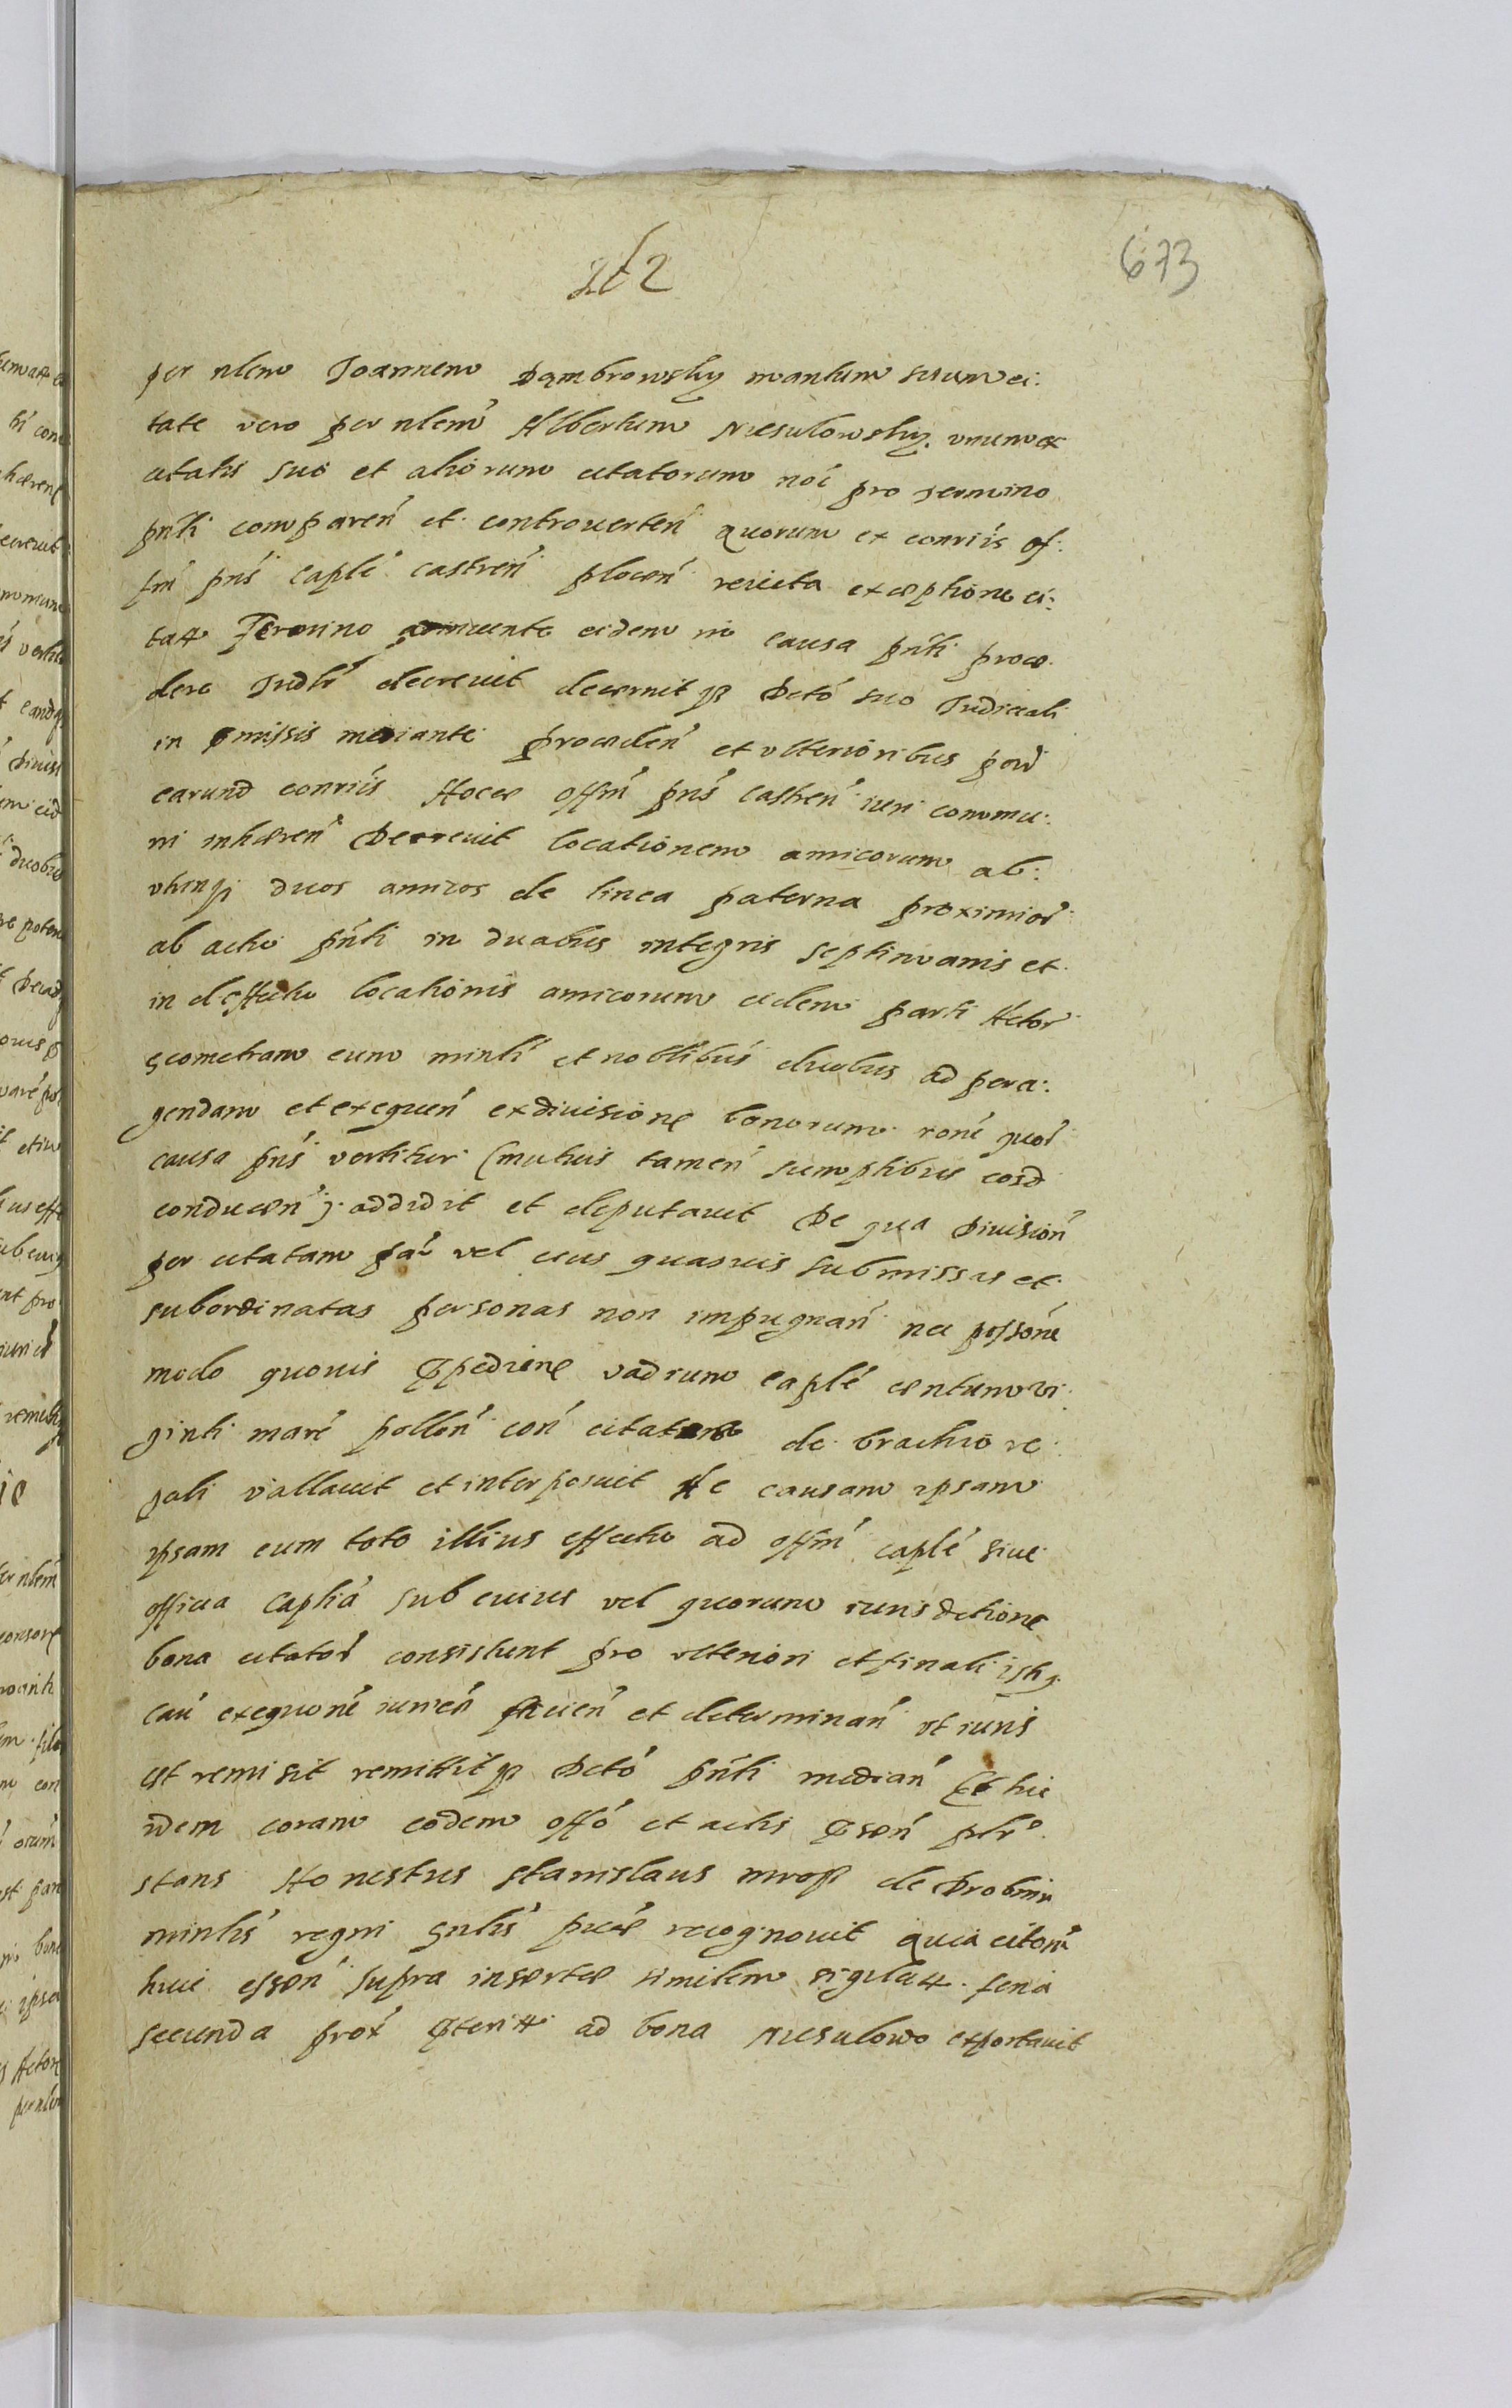 673
per nlem Joannem Dąmbrowsky maritum suum ci:
tate vero per nlem Albertum Niesulowsky unum ex
citatis suo et aliorum citatorum noi pro termino
pnti comparen et controverten quorum ex conriis of:
fm pns caple castren plocen reiecta exceptione ci:
tatt Termino eidem in causa pnti proce
dere Indlr decrevit decernitq Dcto suo Judiciali
in pmissis mediante proceden et ulterioribus
earund conriis Hocce offm pns castren iuri commu:
ni inhæren Decrevit locationem amicorum ab:
utrinqz duos amicos de linea paterna proximior
ab actu pnti in duabus integris septimanis et
in deffectu locationis amicorum eidem parti Actor
geometram cum minli et noblibus duobus ad pera:
gendam et exequen exdivisione bonorum rone quor
causa pns vertitur (mutuis tamen sumptibus eord
conducen) addidit et deputavit De qua Division
per citatam par vel eius quasvis submissas et
subordinatas personas non impugnan nec possone
modo quovis ppedien vadium caple centum vi:
ginti marc pollon con citatam de brachio re:
gali vallavit et interposuit Ac causam ipsam
ipsam cum toto illius effectu ad offm caple sive
officia captia sub cuius vel quorum iurisdctione
bona citator consistunt pro ulteriori et finali istq
cau exequone iuricn facien et determinan ut iuris
est remisit remittitq Dcto pnti median Et hic
idem coram eodem offo et actis psen plr
stans Honestus Stanislaus mroz de Drobnin
minlis regni gnlis pics recognovit quia citonem
huic essen supra insertæ similem sigillatt feria
secunda prox pteritt ad bona Niesulowo exportavit